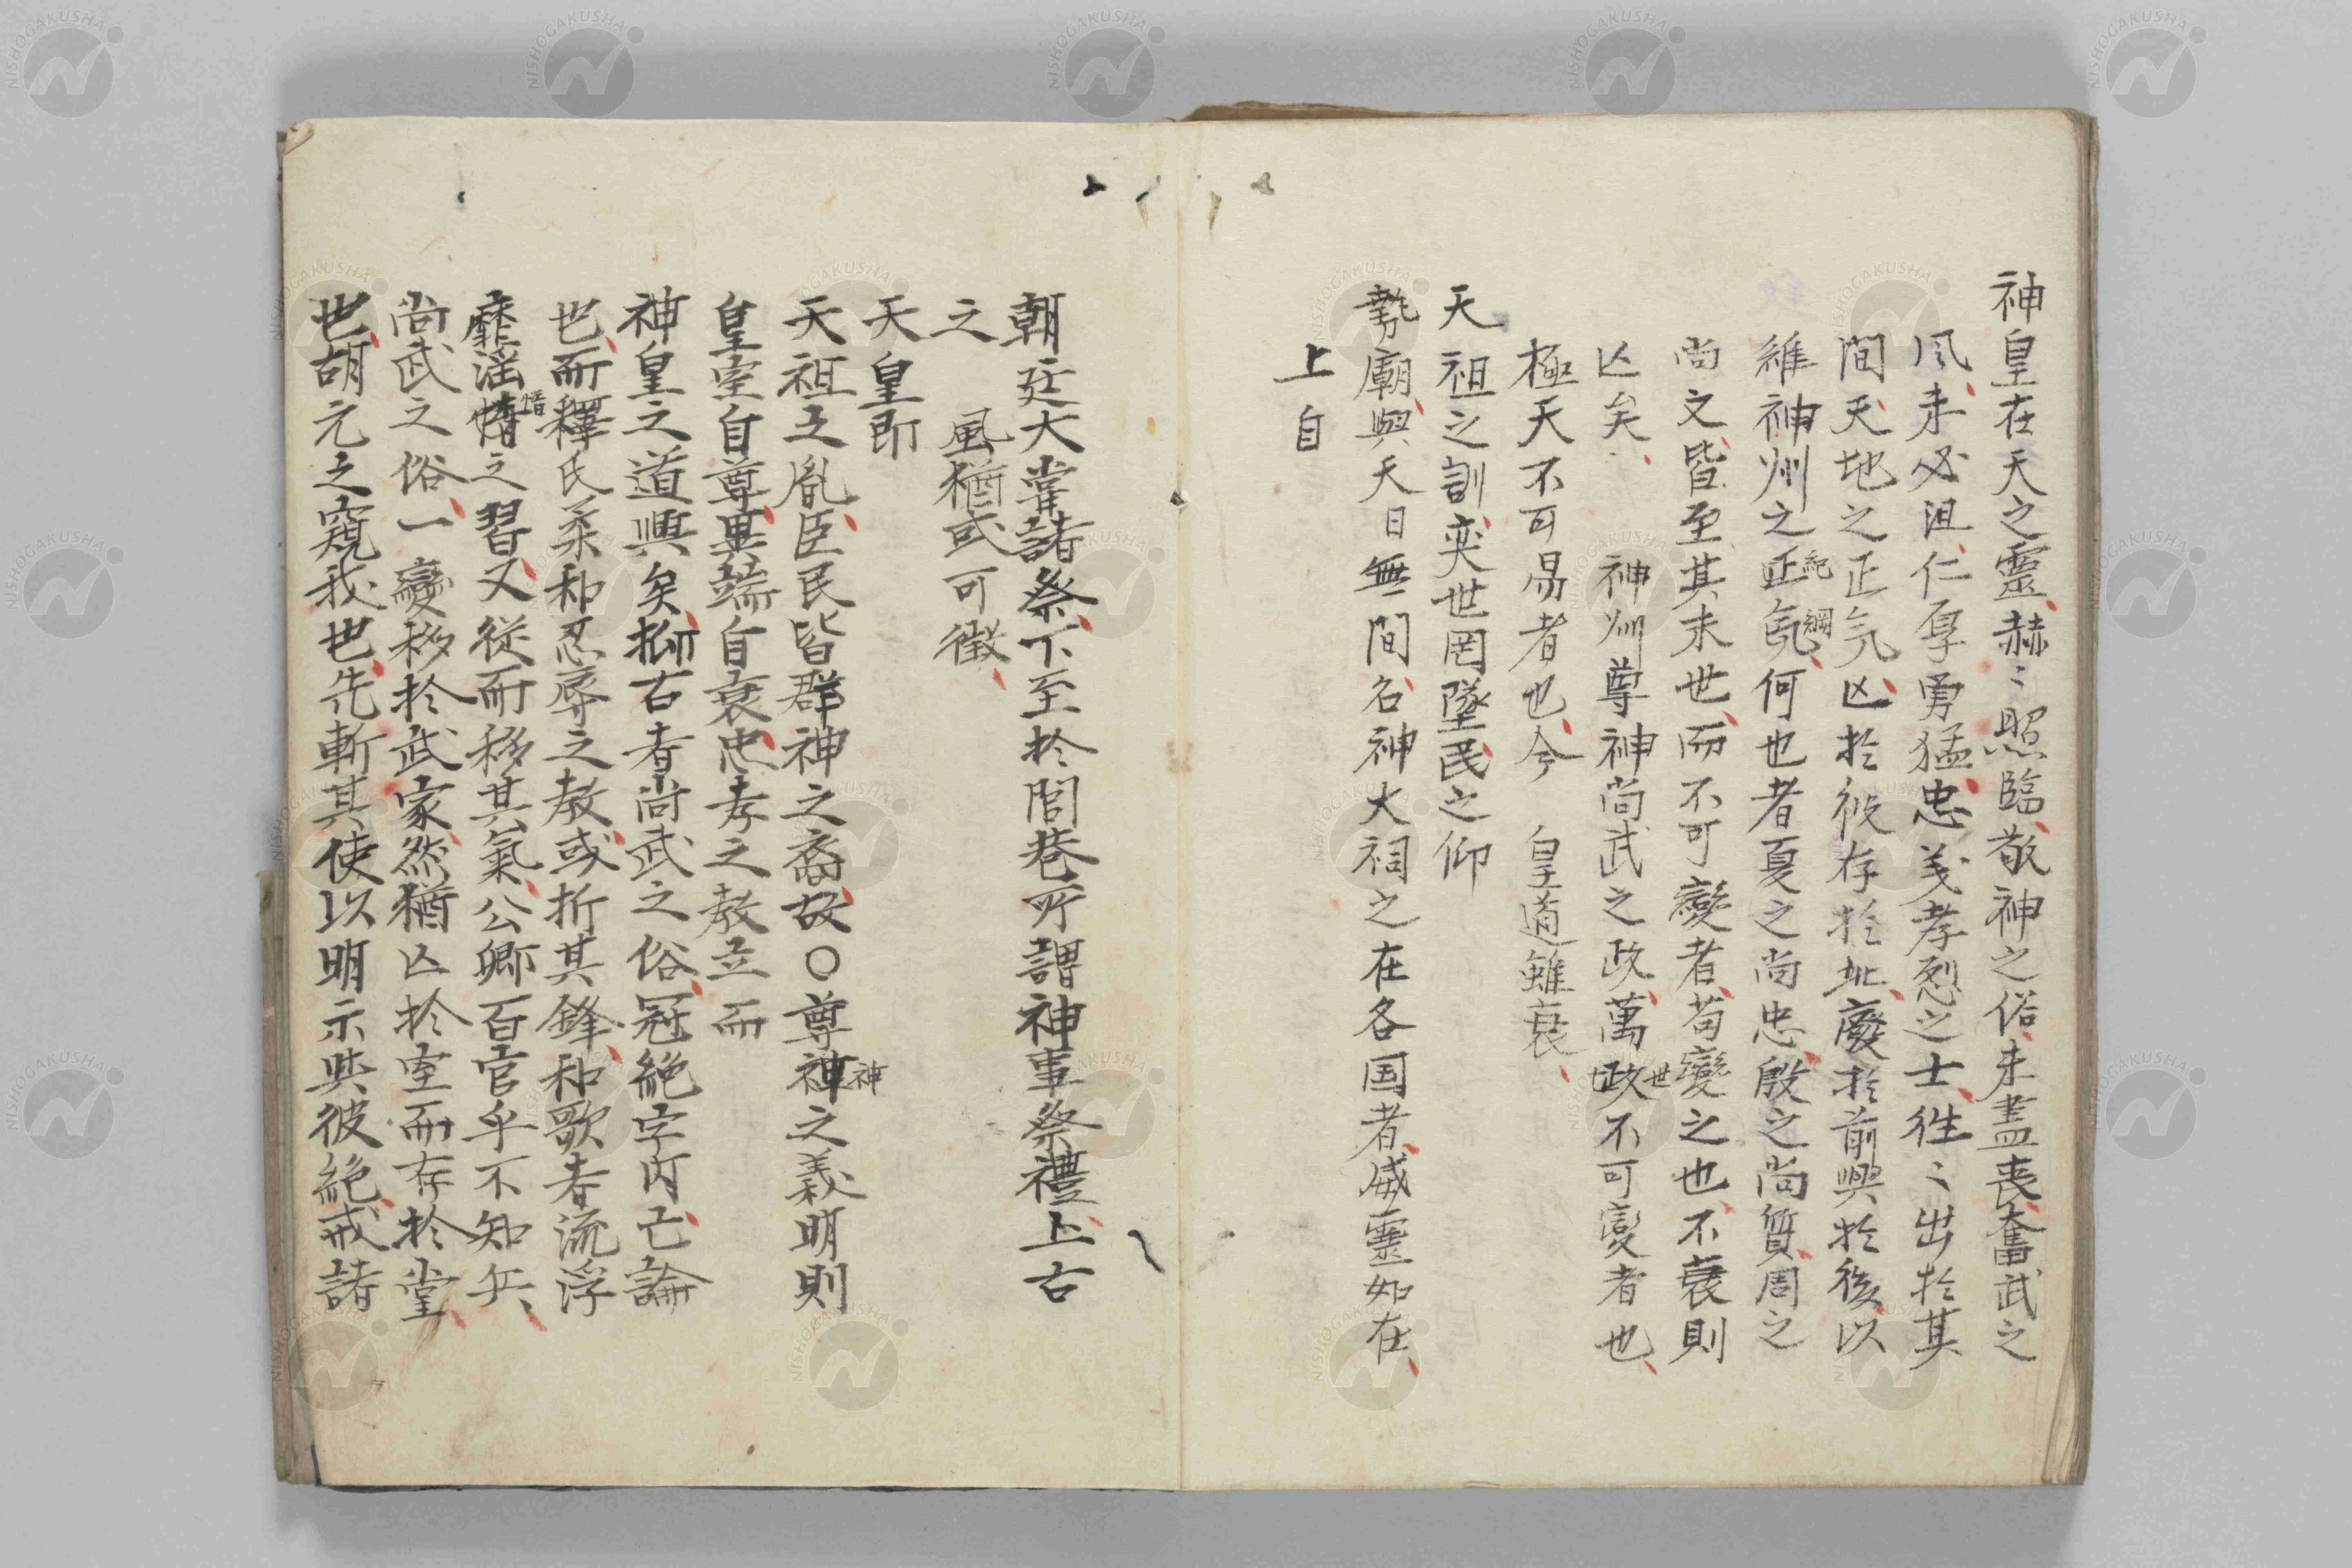 神皇在天之靈赫〻照臨敬神之俗未盡喪奮武之
風未必沮仁厚勇猛忠義孝烈之士徃〻出於其
間天地之正気亾於彼存於此廢於前興於後以
維神州之正氣何也者夏之尚忠殷之尚質周之
紀綱
尚文皆至其末世而不可變者苟變之也不衰則
亾矣神州尊神尚武之政萬政不可變者也
世
極天不可易者也今皇道雖衰
天祖之訓奕世罔墜民之仰
勢廟與天日無間名神大祠之在各国者威靈如在
上自
朝廷大嘗諸祭下至於閭巷所謂神事祭禮上古
之風猶或可徵
天皇即
天祖之胤臣民皆群神之裔故〇尊神之義明則
神
皇室自尊異端自衰忠孝之教立而
神皇之道興矣抑古者尚武之俗冠絶宇内亡論
也而釋氏柔和忍辱之教或折其鋒和歌者流浮
靡淫惰之習又從而移其氣公卿百官乎不知兵
惰
尚武之俗一變移於武家然猶亾於室而存於堂
也胡元之窺我也先斬其使以明示與彼絶戒諸
NISHOGAKUSHA